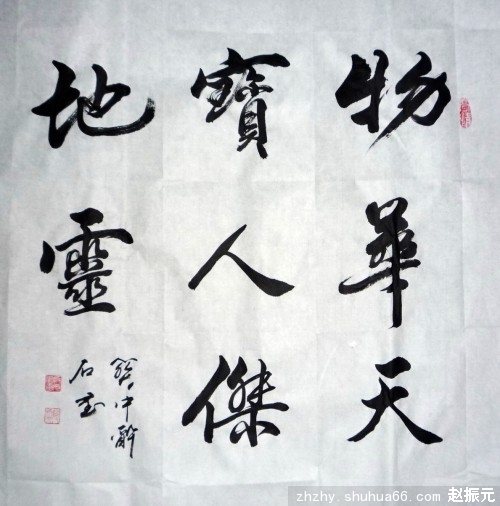 物華天
寶人傑
地靈
zhzhy.shuhua66.com 赵振元